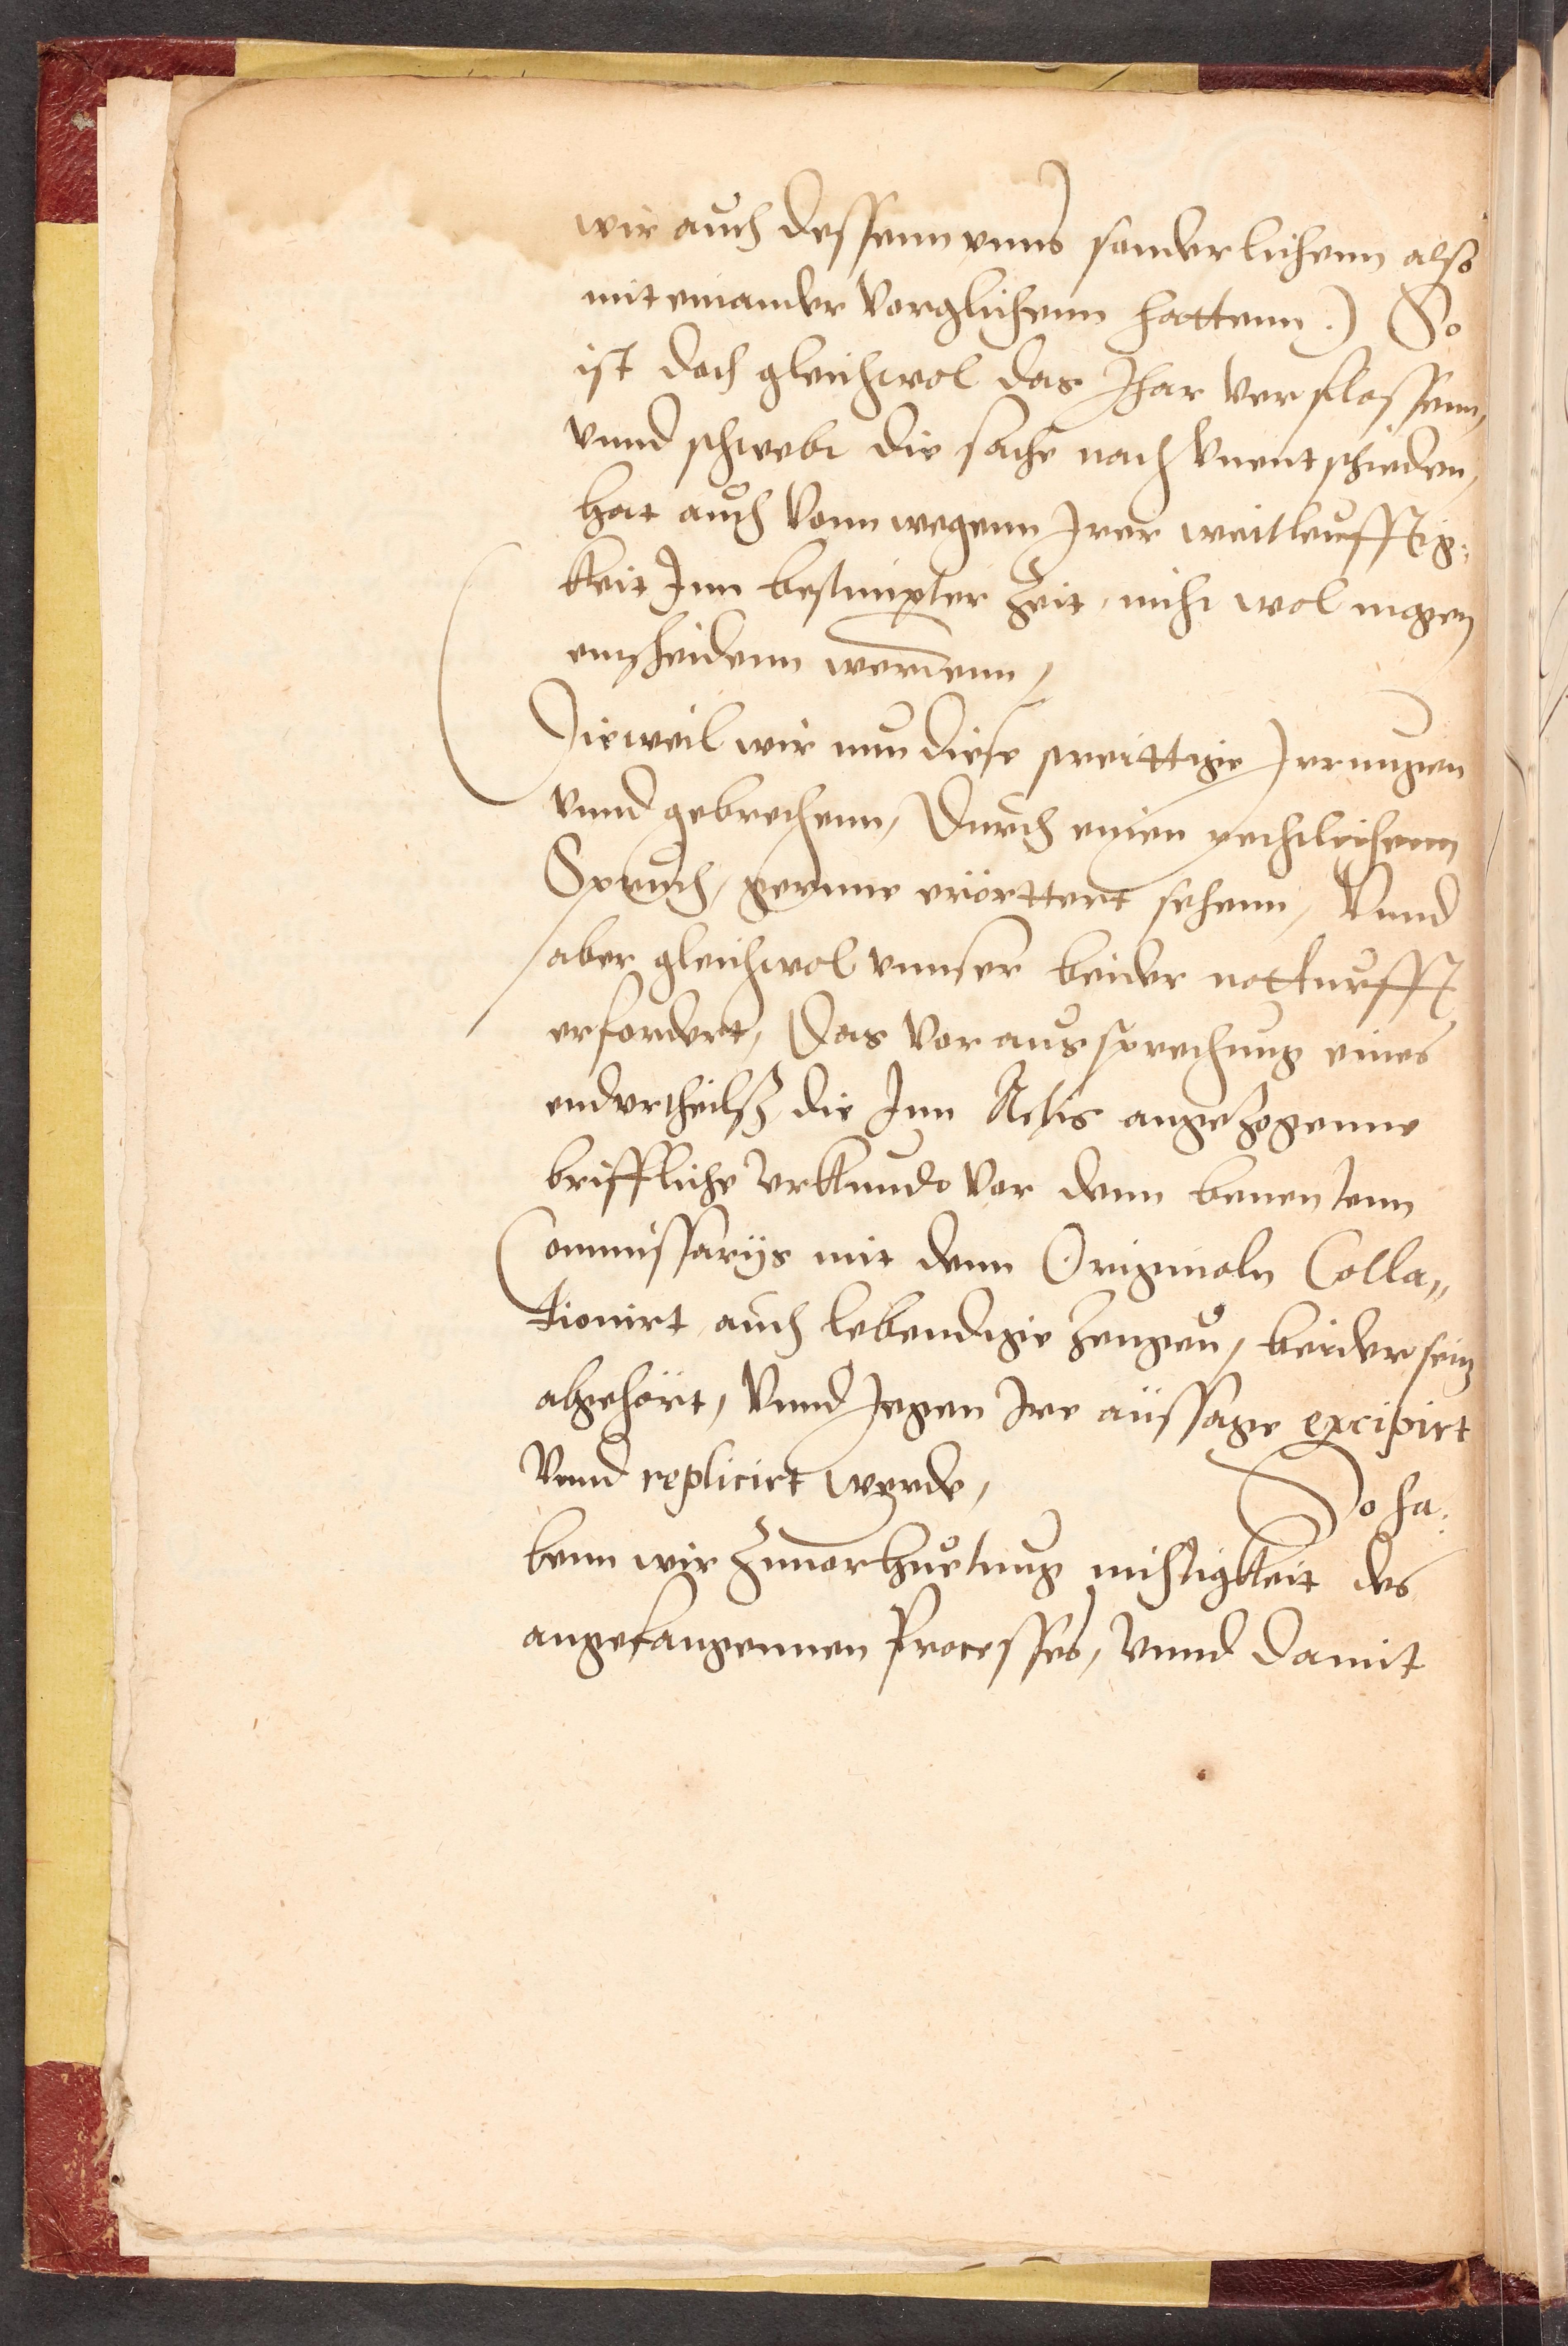 wir auch dessenn vnns sonderlichenn also
mit einander vorglichenn hattenn.) So
ist doch gleichwol das Jhar verflossenn,
vnnd schwebt die sache noch vnentschieden,
hat auch vonn wegenn Irer weitleufftig:
keit Inn bestimpter Zeit, nicht wol mogen
entscheidenn werdenn,
Dieweil wir nun diese streittige Irrungen
vnnd gebrechenn, Durch einen rechtlichenn
Spruch, gernne erörttert sehenn, Vnnd
aber gleichwol vnnser beider notturfft
erfordert, Das vor aussprechung eines
endvrtheilß die Inn Actis angezogenne
briffliche vrkunde vor denn benentenn
Commissarijs mit denn Originaln Colla„
tionirt auch lebendige Zeugen, beiderseitz
abgehört, Vnnd Jegen Ire aussage excipirt
Vnnd replicirt werde, So ha:
benn wir Zuuorhuetung nichtigkeit des
angefangennen Processes, vnnd damit